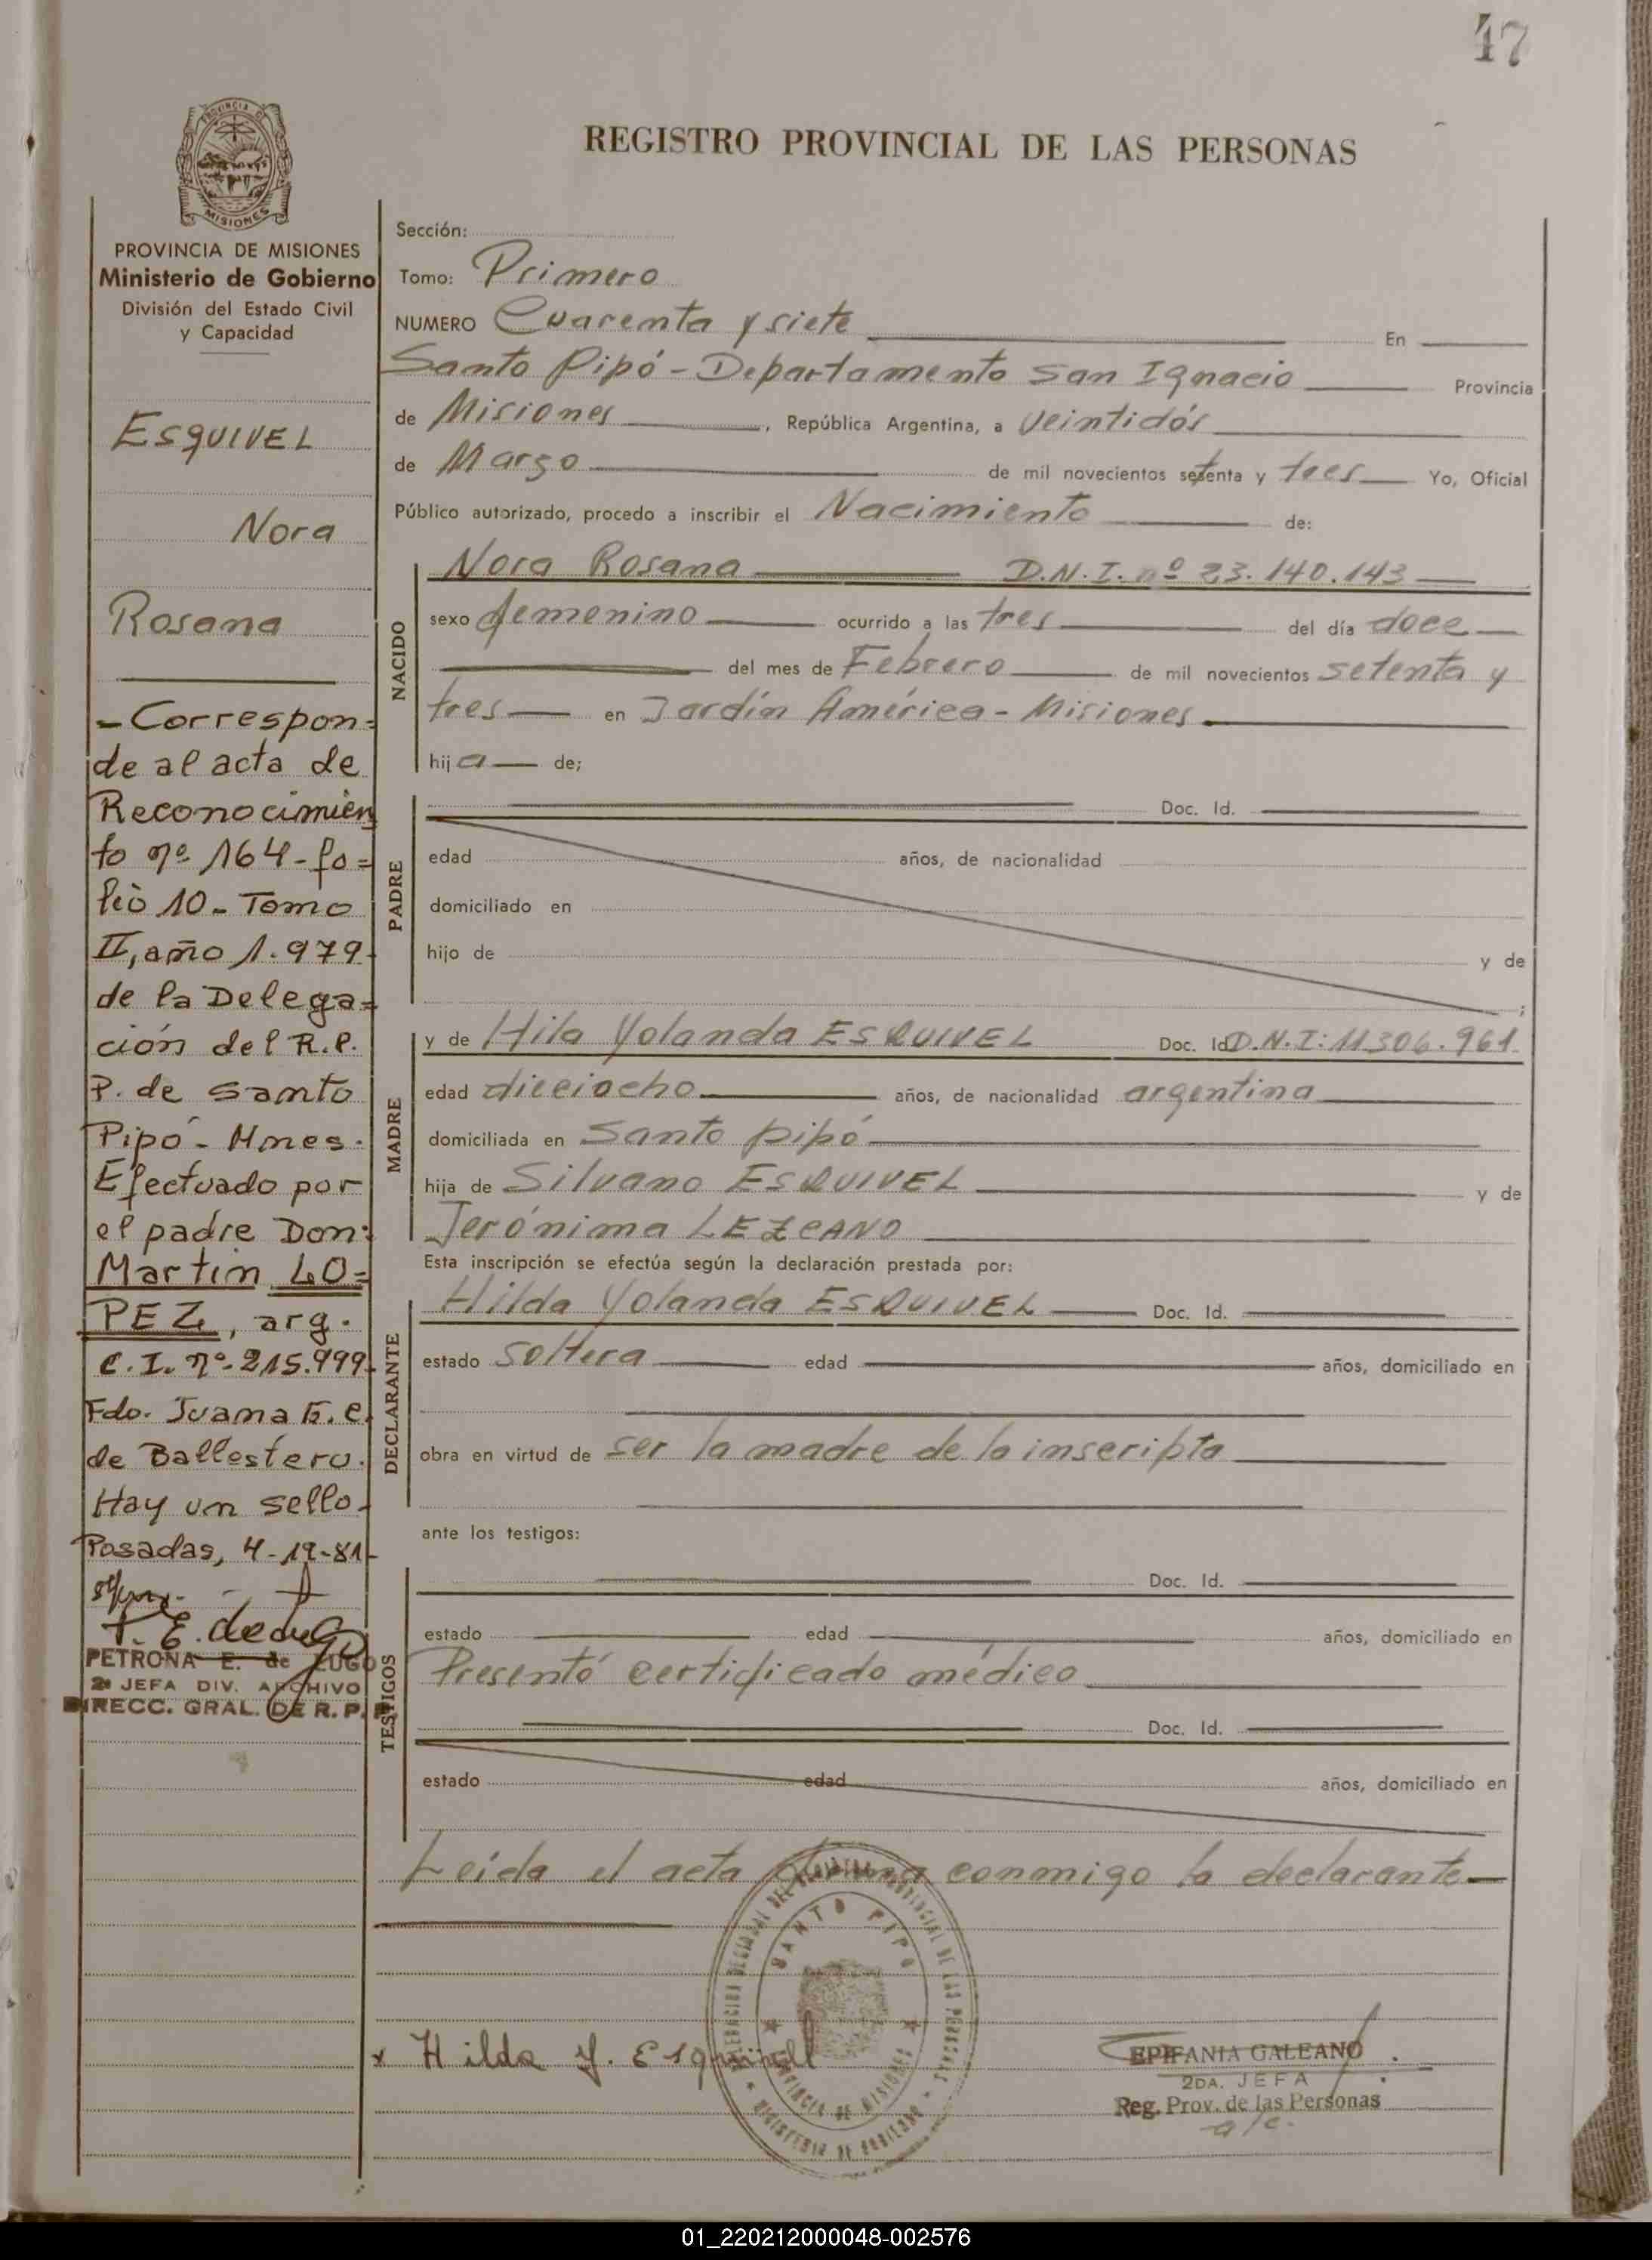 47
REGISTRO PROVINCIAL DE LAS PERSONAS
PROVINCIA DE MISIONES
Ministerio de Gobierno
División del Estado Civil
y Capacidad
ESQUIVEL
Nora
Rosana
- Correspon=
de al acta de
Reconocimien
to nº 164 - fo=
lio 10 - Tomo
II, año 1.979
de la Delega=
ción del R.P.
P. de Santo
Pipó - Mnes.
Efectuado por
el padre Don:
Martin LO=
PEZ, arg.
C.I. nº 215.999
Fdo. Juana E. C.
de Ballestero.
Hay un sello
Posadas, 4-12-81
PETRONA E. de LUGO
2ª JEFA DIV. ARCHIVO
DIRECC. GRAL. DE R. P. P.
Sección:
Tomo: Primero
NUMERO Cuarenta y siete En
Santo Pipó - Departamento San Ignacio Provincia
de Misiones, República Argentina, a veintidós
de Marzo de mil novecientos setenta y tres Yo, Oficial
Público autorizado, procedo a inscribir el Nacimiento de:
NACIDO
Nora Rosana D.N.I. nº 23.140.143
sexo femenino ocurrido a las tres del día doce
del mes de Febrero de mil novecientos setenta y
tres en Jardín América - Misiones
hija de;
PADRE
Doc. Id.
edad años, de nacionalidad
domiciliado en
hijo de y de
;
MADRE
y de Hila Yolanda ESQUIVEL Doc. Id D.N.I: 11.306.961
edad dieciocho años, de nacionalidad argentina
domiciliada en Santo Pipó
hija de Silvano ESQUIVEL y de
Jerónima LEZCANO
Esta inscripción se efectúa según la declaración prestada por:
DECLARANTE
Hilda Yolanda ESQUIVEL Doc. Id.
estado soltera edad años, domiciliado en
obra en virtud de ser la madre de la inscripta
ante los testigos:
TESTIGOS
Doc. Id.
estado edad años, domiciliado en
Presentó certificado médico
Doc. Id.
estado edad años, domiciliado en
Leida el acta firma conmigo la declarante
SANTO PIPO
PROVINCIA DE MISIONES
MINISTERIO DE GOBIERNO
x Hilda Y. Esquivel
EPIFANIA GALEANO
2DA. JEFA
Reg. Prov. de las Personas
a/c.
01_220212000048-002576